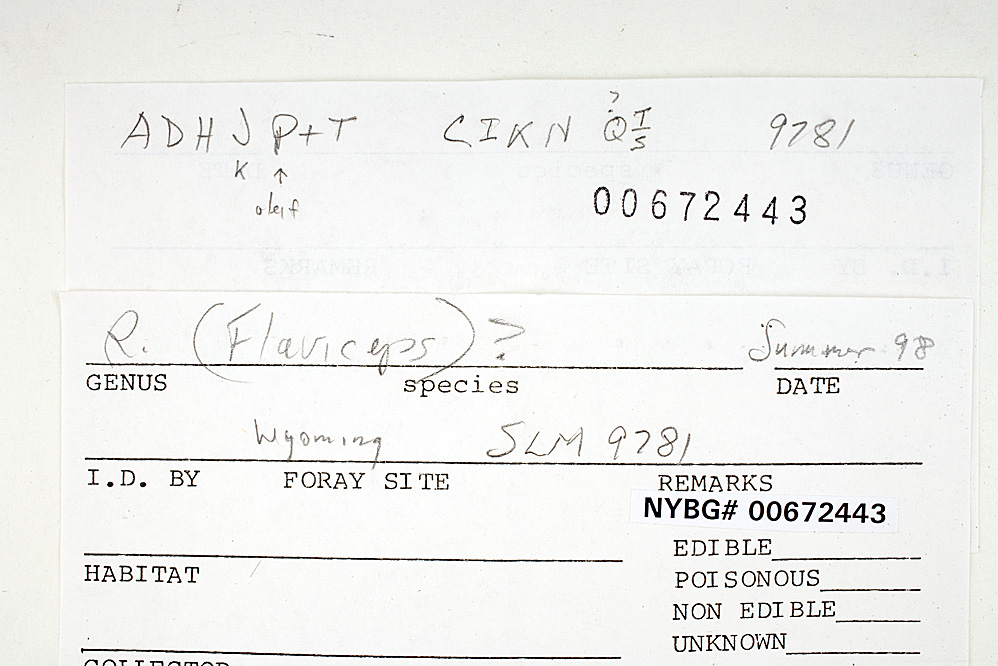 ADHJ P+T CIKN Q? T/S 9781
K ↑
00672443
R. (Flaviceps)? Summer 98
GENUS species DATE
Wyoming SLM 9781
I.D. BY FORAY SITE REMARKS
NYBG# 00672443
EDIBLE
POISONOUS
HABITAT
NON EDIBLE
UNKNOWN
COLLECTOR